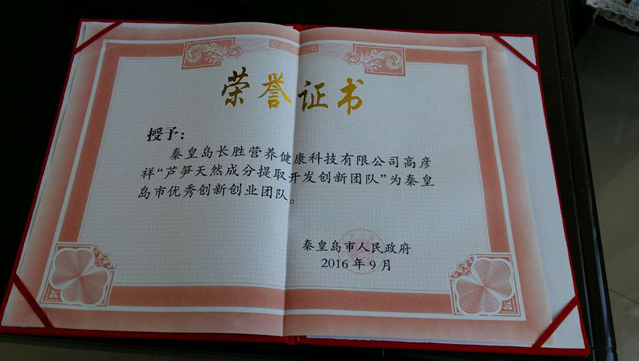 荣誉证书
授予：
秦皇岛长胜营养健康科技有限公司高彦
祥“芦笋天然成分提取开发创新团队”为秦皇
岛市优秀创新创业团队。
秦皇岛市人民政府
2016年9月